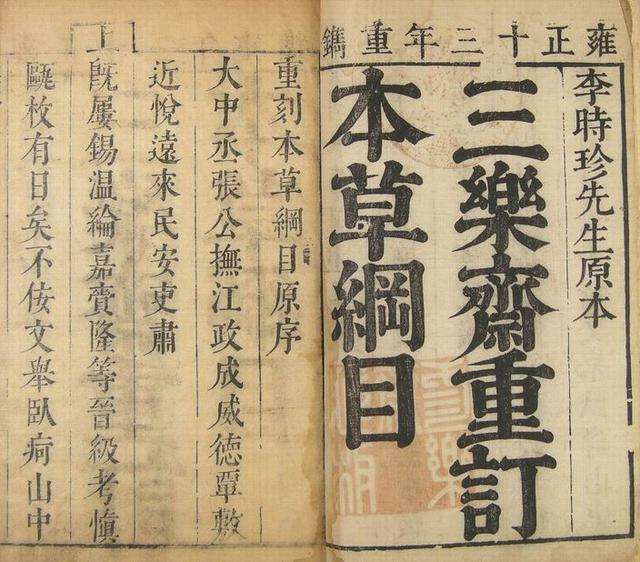 雍正十三年重鐫
李時珍先生原本
三樂齋重訂
本草綱目
重刻本草綱目原序
大中丞張公撫江政成威德覃敷
近悅遠來民安吏肅
上
既屢錫溫綸嘉賚隆等晉級考慎
甌枚有日矣不佞文舉臥疴山中